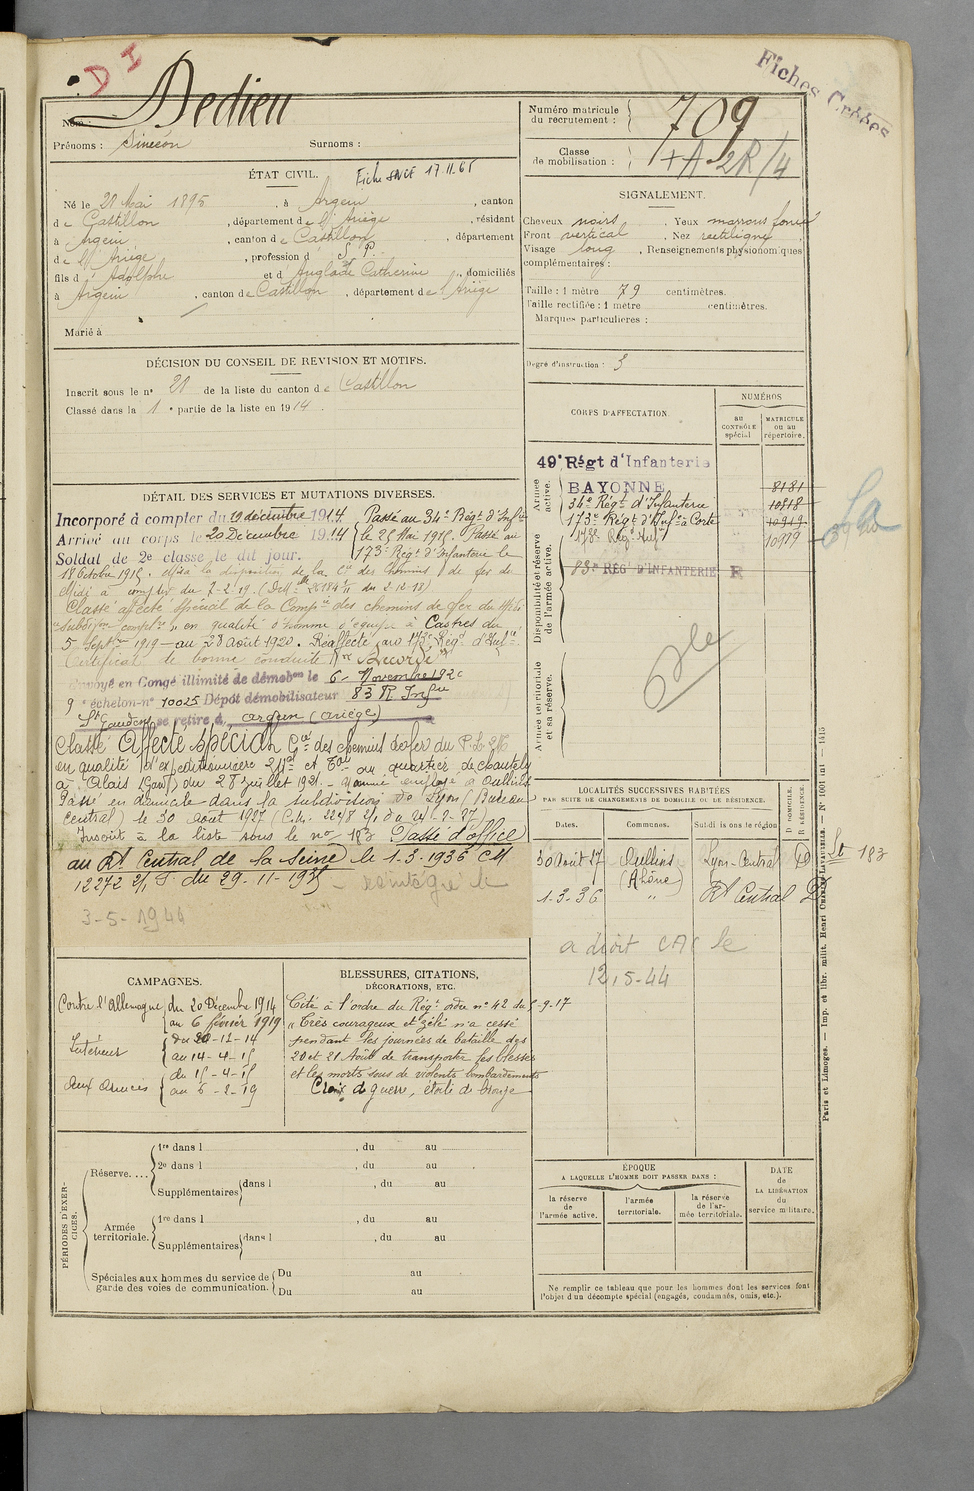 D I
Fiches Créées
Nom : Dedieu
Prénoms : Siméon Surnoms :
Numéro matricule du recrutement : 709
Classe de mobilisation :
ÉTAT CIVIL. Fiche SNCF 17.11.65
Né le 21 Mai 1895, à Argein, canton
de Castillon, département de l'Ariège, résidant
à Argein, canton de Castillon, département
de l'Ariège, profession d
fils d'Adolphe et d'Anglade Catherine, domiciliés
à Argein, canton de Castillon, département de l'Ariège
Marié à
SIGNALEMENT.
Cheveux noirs. Yeux marrons foncé
Front vertical. Nez rectiligne
Visage long, Renseignements physionomiques
complémentaires :
Taille : 1 mètre 79 centimètres.
Taille rectifiée : 1 mètre centimètres.
Marques particulières :
Degré d'instruction : 3
DÉCISION DU CONSEIL DE REVISION ET MOTIFS.
Inscrit sous le n° 21 de la liste du canton de Castillon
Classé dans la 1e partie de la liste en 1914.
DÉTAIL DES SERVICES ET MUTATIONS DIVERSES.
Incorporé à compter du 19 décembre 1914
Arrivé au corps le 20 Décembre 1914
Soldat de 2e classe le dit jour.
Passé au 34e Régt d'Infie
le 25 Mai 1915. Passé au
173e Régt d'Infanterie le
18 Octobre 1915. Mis à la disposition de la Cie des Chemins de fer du
Midi à compter du 7-2-19.
Classé affecté spécial de la Compie des chemins de fer du Midi
en qualité d'homme d'équipe à Castres du
5 Septbre 1919 au 28 Août 1920. Réaffecté au 173e Régt d'Infie
Certificat de bonne conduite "Accordé"
Envoyé en Congé illimité de démobon le 6 Novembre 192
9e échelon n° 10025 Dépôt démobilisateur 83 R Infie
St Gaudens se retire à Argein (Ariège)
Classé Affecté spécial Cie des chemins de fer du P.L.M
à Alais (Gard) du 28 juillet 1921
Passé en domicile dans la subdivision de Lyon (Bureau
Central) le 30 Aout 1927
Inscrit à la liste sous le no 183 Passé d'office
au Rt Central de la Seine le 1-3-1936 CM
12272 2/1 du 29-11-1935 - réintégré le
3-5-1944
CORPS D'AFFECTATION.
NUMÉROS
au CONTRÔLE spécial
MATRICULE ou au répertoire.
Armée active.
49e Régt d'Infanterie
BAYONNE 8181
34e Régt d'Infanterie 10818
173e Régt d'Infie à Corte 10919
173e Régt Inf 10919
Disponibilité et réserve de l'armée active.
83e RÉGt D'INFANTERIE R
Armée territoriale et sa réserve.
LOCALITÉS SUCCESSIVES HABITÉES
PAR SUITE DE CHANGEMENTS DE DOMICILE OU DE RÉSIDENCE.
Dates. Communes. Subdivisions de région D DOMICILE. R RÉSIDENCE.
30 Aout 27 Oullins (Rhône) Lyon-Central D Lt 183
1-3-36 " Rt Central D
a droit CAC le
12-5-44
CAMPAGNES.
Contre l'Allemagne du 20 Décembre 1914
au 6 février 1919
Intérieur du 20-12-14
au 14-4-15
Aux Armées du 15-4-15
au 6-2-19
BLESSURES, CITATIONS,
DÉCORATIONS, ETC.
Cité à l'ordre du Régt ordre n° 42 du 5-9-17
"Très courageux et zélé n'a cessé
pendant les journées de bataille des
20 et 21 Août de transporter les blessés
et les morts sous de violents bombardements
Croix de guerre, étoile de bronze
PÉRIODES D'EXERCICES.
Réserve....
1re dans l , du au
2e dans l , du au
Supplémentaires dans l , du au
Armée territoriale.
1re dans l , du au
Supplémentaires dans l , du au
Spéciales aux hommes du service de
garde des voies de communication.
Du au
Du au
ÉPOQUE
A LAQUELLE L'HOMME DOIT PASSER DANS :
la réserve de l'armée active.
l'armée territoriale.
la réserve de l'armée territoriale.
DATE de LA LIBÉRATION du service militaire.
Ne remplir ce tableau que pour les hommes dont les services font
l'objet d'un décompte spécial (engagés, condamnés, omis, etc.).
Paris et Limoges. — Imp. et libr. milit. Henri CHARLES-LAVAUZELLE.